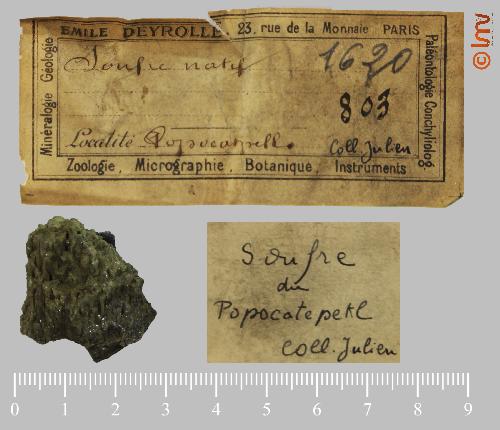 EMILE DEYROLLE, 23, rue de la Monnaie PARIS
Minéralogie Géologie
Paléontologie Conchyliolog.
Soufre natif
1620
803
Localité Popocatepell.
Coll. Julien
Zoologie, Micrographie, Botanique, Instruments
Soufre
du
Popocatepetl
Coll. Julien
0 1 2 3 4 5 6 7 8 9